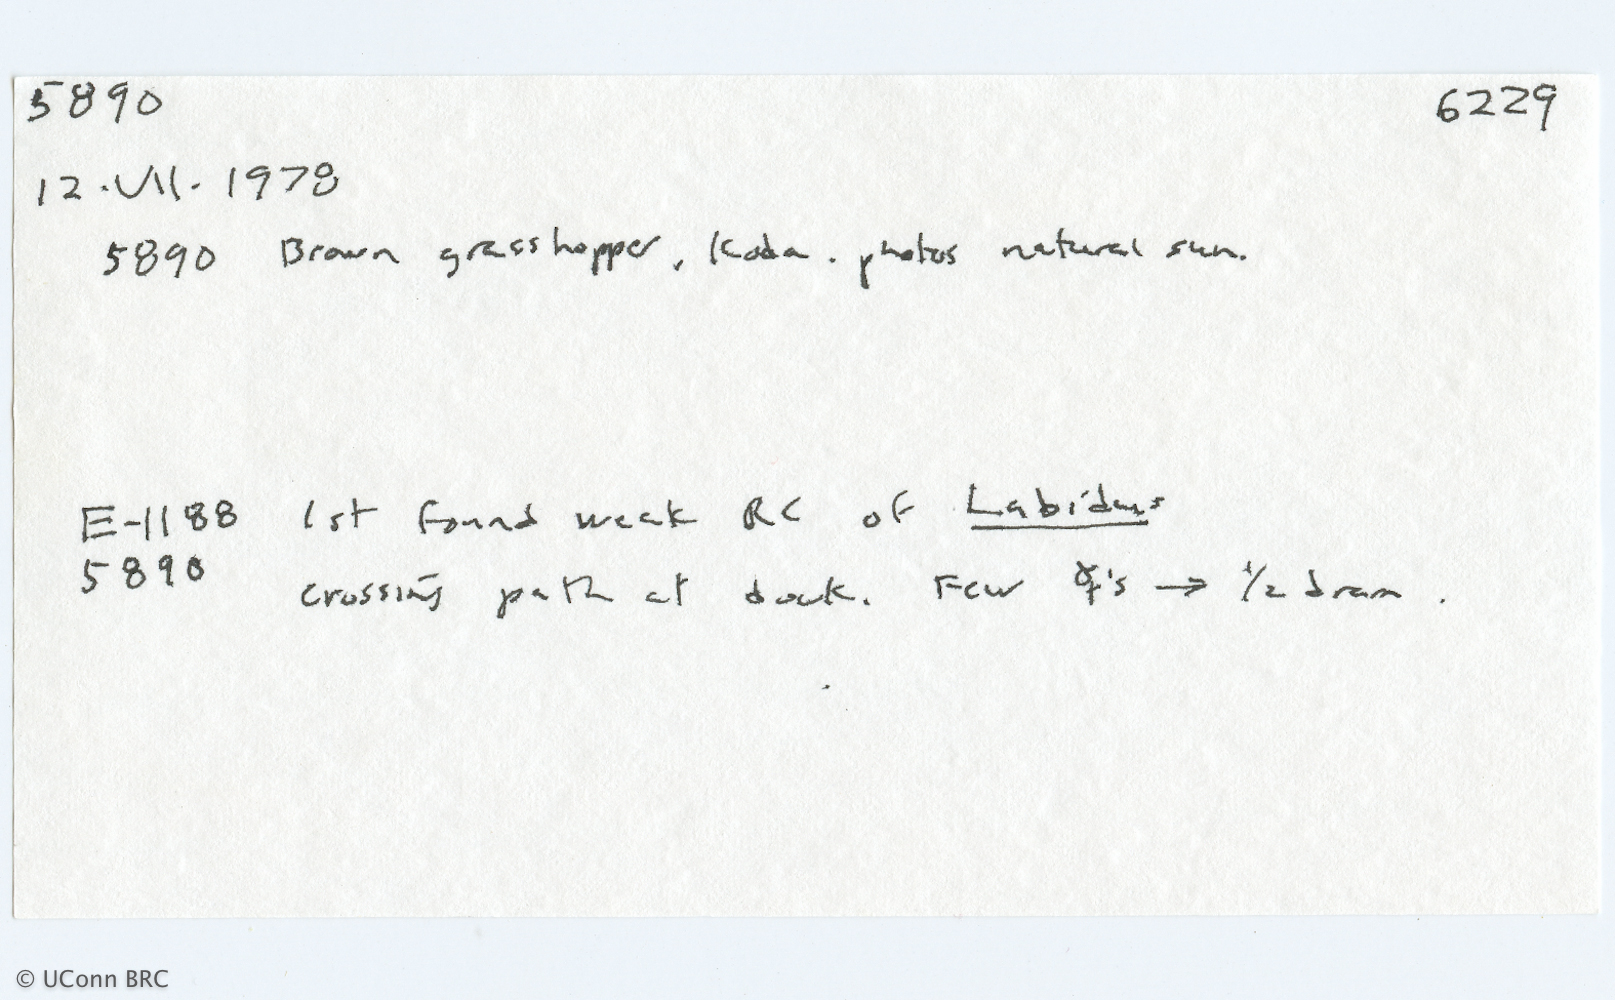 5890 6229
12.VII.1978
5890 Brown grasshopper, Koda. photos natural sun.
E-1188 1st found weak RC of Labidus
5890 crossing path at dock. Few ☿'s → 1/2 dram.
© UConn BRC